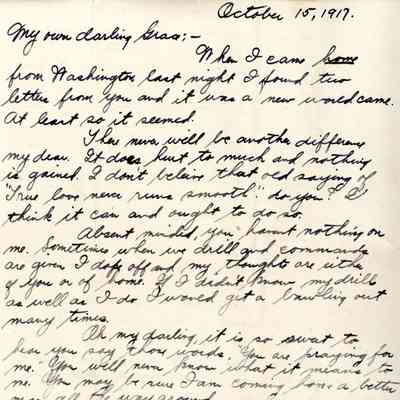 October 15, 1917.
My own darling Grace;-
When I came home
from Washington last night I found two
letters from you and it was a new world came.
At least so it seemed.
There never will be another difference
my dear. It does hurt to much and nothing
is gained. I don't beleive that old saying of
"True love never runs smooth" do you? I
think it can and ought to do so.
Absent minded, you havent nothing on
me. Sometimes when we drill and commands
are given I dope off and my thoughts are either
of you or of home. If I didn't know my drill
as well as I do I would get a bawling out
many times.
Oh my darling, it is so sweat to
hear you say those words, "You are praying for
me. You will never know what it means to
me. You may be sure I am coming home a better
man all the way around.